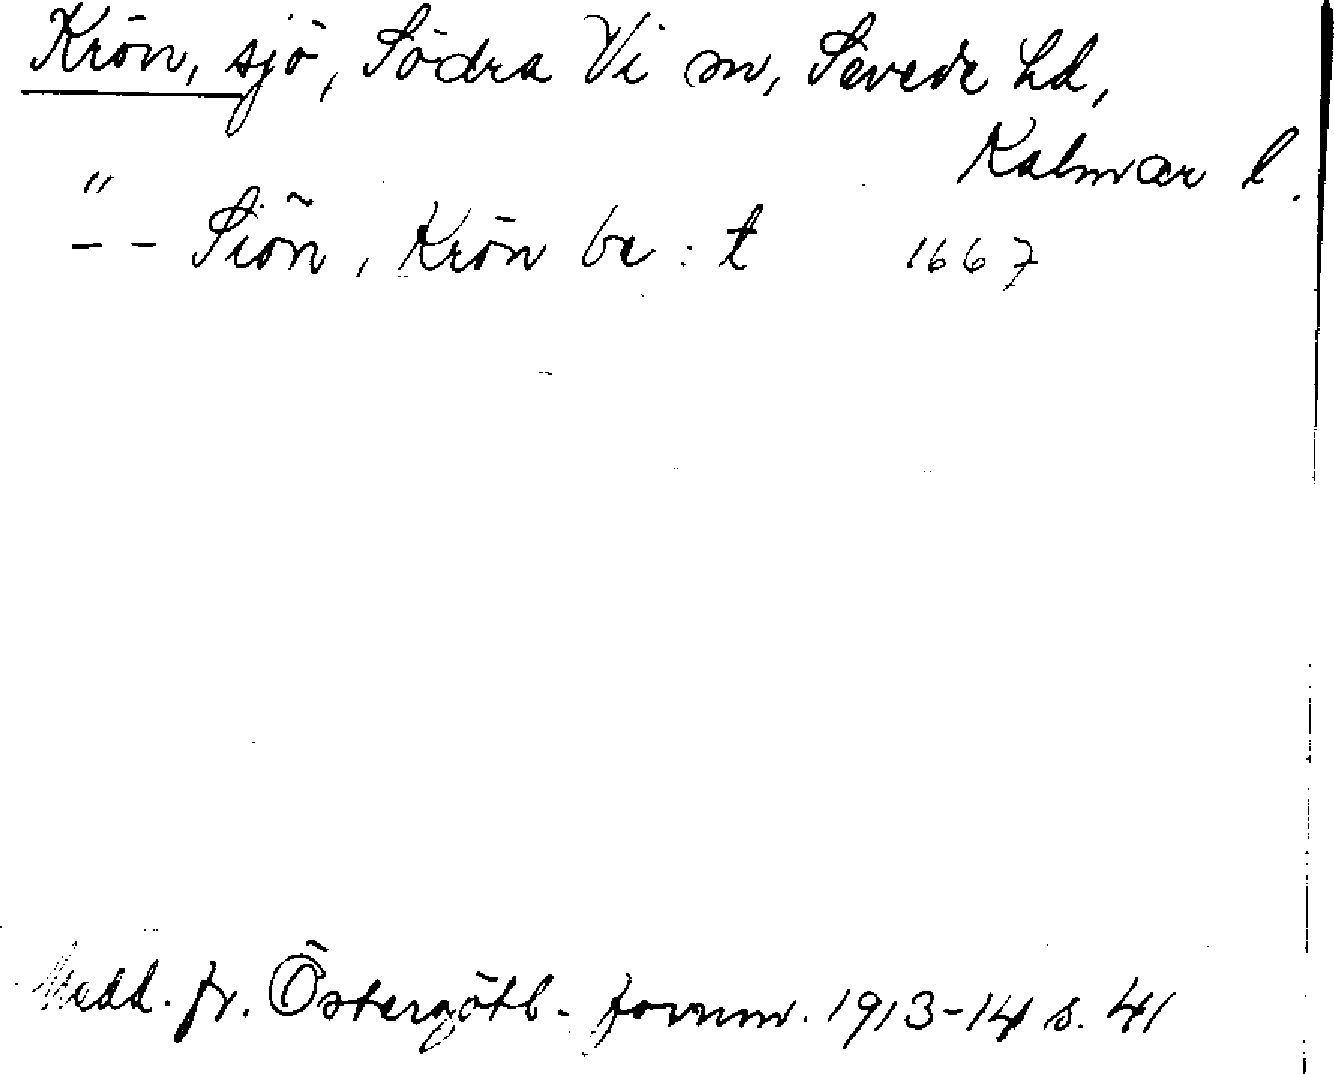 Krön, sjö, Södra Vi sn, Sevede hd,
Kalmar l.
"
-- Siön, Krön be: t 1667
Medd. fr. Östergötl. fornm. 1913-14 s. 41